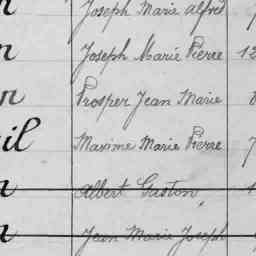 n Joseph Marie Alfred
n Joseph Marie Pierre 12
n Prosper Jean Marie
il Maxime Marie Pierre 7
n Albert Gaston
n Jean Marie Joseph